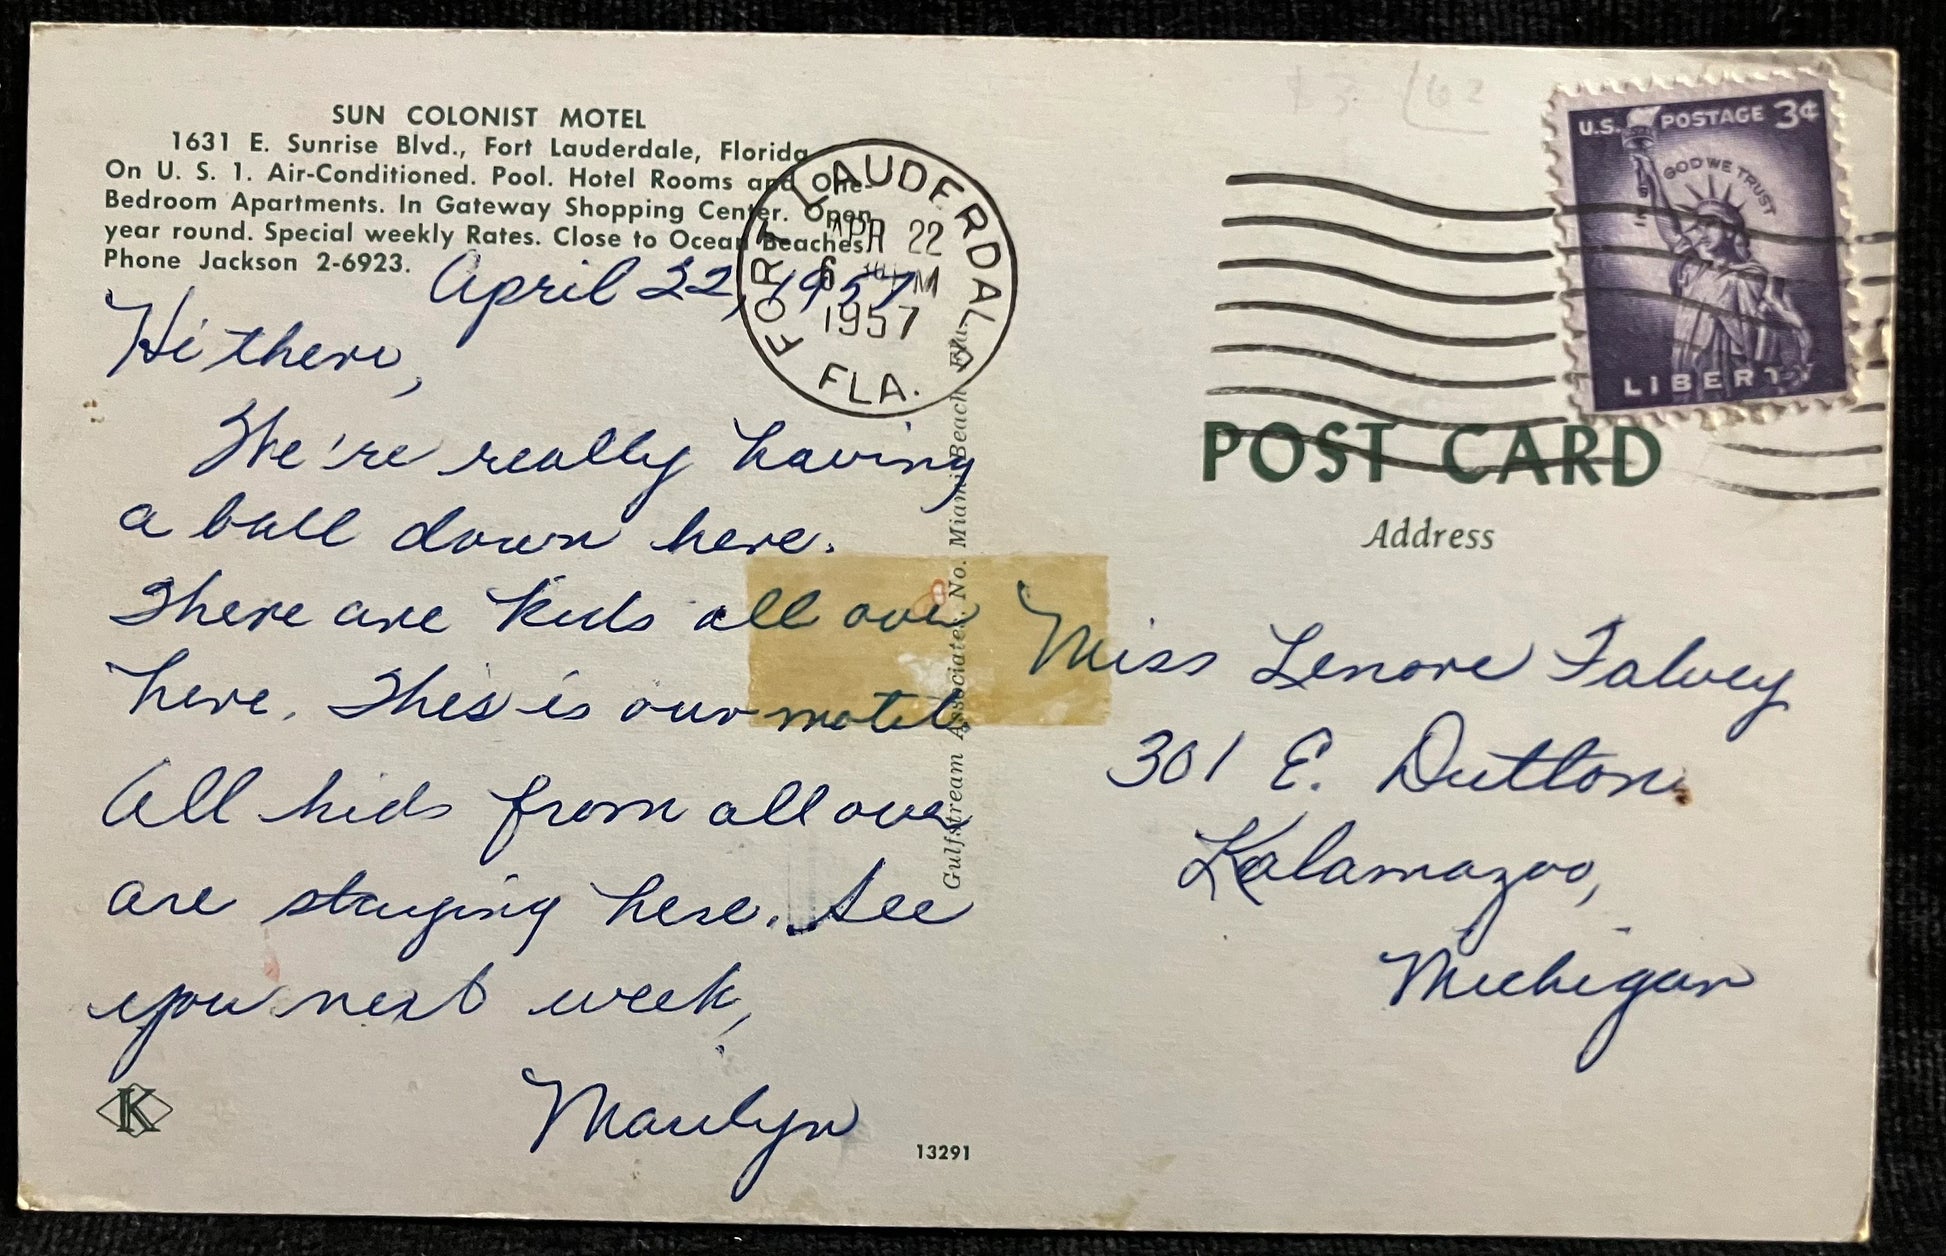 SUN COLONIST MOTEL
1631 E. Sunrise Blvd., Fort Lauderdale, Florida
On U. S. 1. Air-Conditioned. Pool. Hotel Rooms and One-
Bedroom Apartments. In Gateway Shopping Center. Open
year round. Special weekly Rates. Close to Ocean Beaches.
Phone Jackson 2-6923.
April 22, 1957
Hi there,
We're really having
a ball down here.
There are kids all over
here. This is our motel.
All kids from all over
are staying here. See
you next week,
Marilyn
K
13291
Gulfstream Associates, No. Miami Beach, Fla.
FORT LAUDERDALE
APR 22
6 PM
1957
FLA.
U.S. POSTAGE 3¢
IN GOD WE TRUST
LIBERTY
POST CARD
Address
Miss Lenore Falvey
301 E. Dutton
Kalamazoo,
Michigan